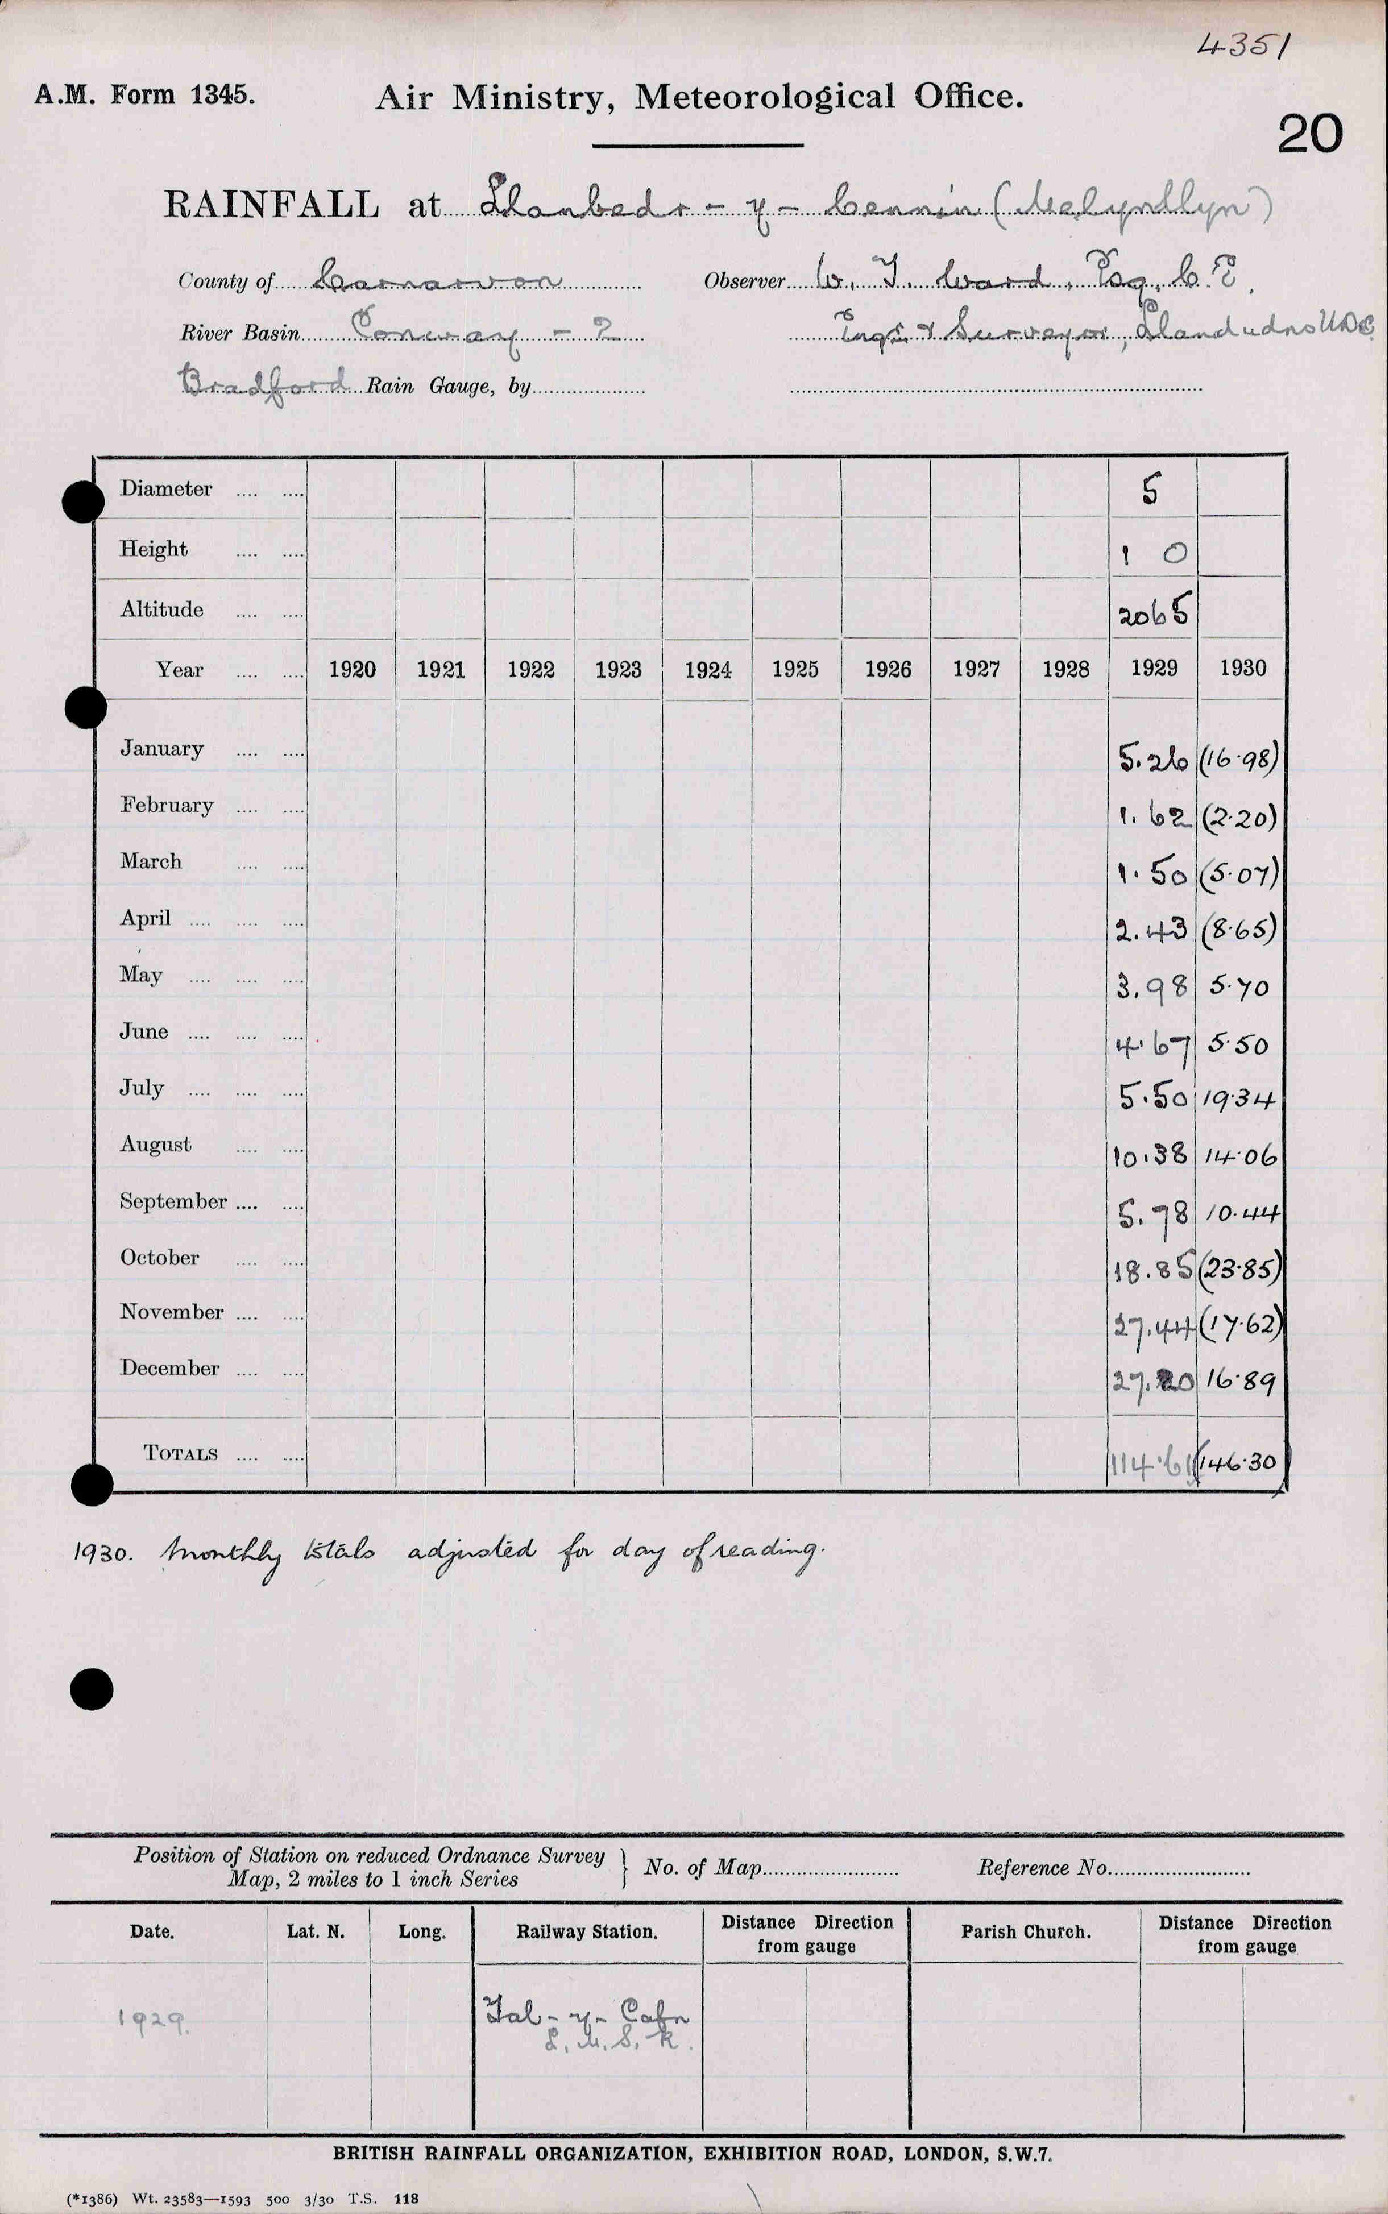 4351
A.M. Form 1345. Air Ministry, Meteorological Office.
20
RAINFALL at Llanbedr-y-Cennin (Melynllyn)
County of Carnarvon Observer W. T. Ward, Esq, C.E.
River Basin Conway - 2 Engr & Surveyor, Llandudno UDC
Bradford Rain Gauge, by
Diameter .... .... 5
Height .... .... 1 0
Altitude .... .... 2065
Year .... .... 1920 1921 1922 1923 1924 1925 1926 1927 1928 1929 1930
January .... .... 5.26 (16.98)
February .... .... 1.62 (2.20)
March .... .... 1.50 (5.07)
April .... .... .... 2.43 (8.65)
May .... .... .... 3.98 5.70
June .... .... .... 4.67 5.50
July .... .... .... 5.50 19.34
August .... .... 10.38 14.06
September .... .... 5.78 10.44
October .... .... 18.85 (23.85)
November .... .... 27.44 (17.62)
December .... .... 27.20 16.89
TOTALS .... .... 114.61 (146.30)
1930. Monthly totals adjusted for day of reading.
Position of Station on reduced Ordnance Survey
Map, 2 miles to 1 inch Series } No. of Map Reference No.
Date. Lat. N. Long. Railway Station. Distance Direction from gauge Parish Church. Distance Direction from gauge
1929. Tal-y-Cafn
L.M.S.R.
BRITISH RAINFALL ORGANIZATION, EXHIBITION ROAD, LONDON, S.W.7.
(*1386) Wt. 23583—1593 500 3/30 T.S. 118